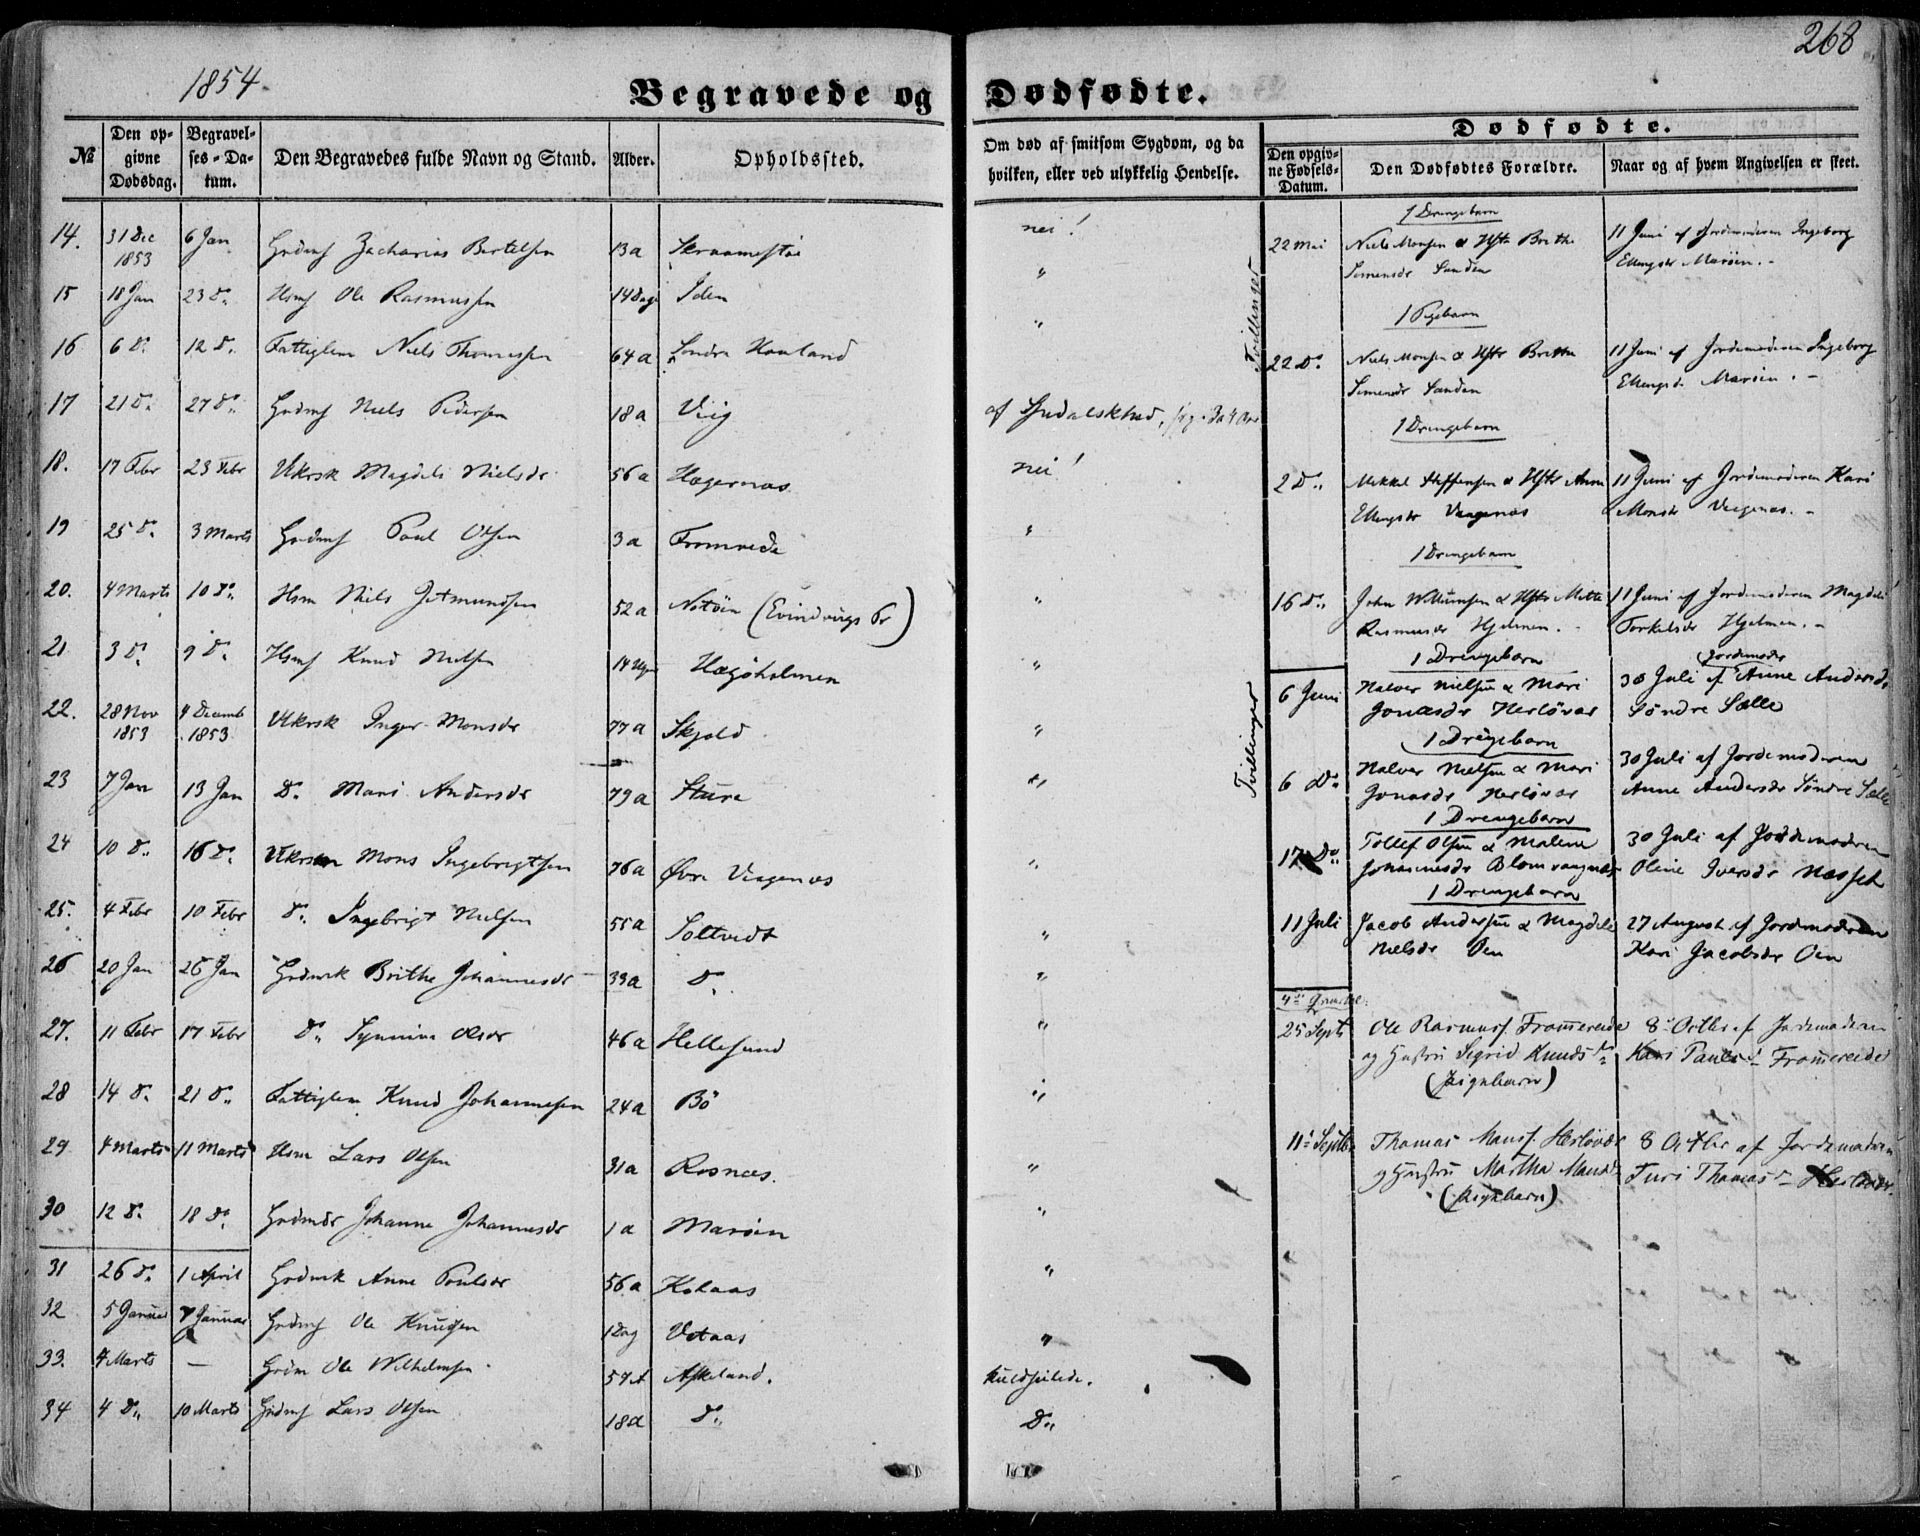 268
1854
Begravede og Dødfødte.
№
Den opgivne Dødsdag.
Begravelses-Datum.
Den Begravedes fulde Navn og Stand.
Alder.
Opholdssted.
Om død af smitsom Sygdom, og da hvilken, eller ved ulykkelig Hendelse.
Dødfødte.
Den opgivne Fødsels-Datum.
Den Dødfødtes Forældre.
Naar og af hvem Angivelsen er skeet.
14. 31 Dec 1853 6 Jan Zacharias Bertelsen 13a nei!
15 18 Jan 23 D. Ole Rasmussen 14 Dage Iden "
16 6 D. 12 D. Fattiglem Niels Thomessen 64a Søndre Houland "
17 21 D. 27 D. Niels Pedersen 18a Viig af Spedalskhed,
18. 17 Febr 23 Febr Vkrsk Magdeli Nielsdr 56a Hagernæs nei!
19 25 D. 3 Marts Poul Olsen 3a "
20. 4 Marts 10 D. Hsm Niels Jetmundsen 52a (Evindvigs Pr) "
21 3 D. 9 D. Knud Nielsen Hægøholmen "
22. 28 Nov 1853 4 Decemb 1853 Vkrsk Inger Monsdr 77a Skjold "
23 7 Jan 13 Jan D. Mari Andersdr 79a Sture "
24 10 D. 16 D. Mons Ingebrigtsen 76a Øvre Vaagenæs "
25. 4 Febr 10 Febr D. Ingebrigt Nielsen 55a Soltvedt "
26 20 Jan 26 Jan Brithe Johannesdr 33a D. "
27. 11 Febr 17 Febr D. Synniva Olsdr 46a Hellesund "
28 14 D. 21 D. Fattiglem Knud Johannesen 24a Bö "
29 4 Marts 11 Marts Hsm Lars Olsen 31a Rosnæs. "
30 12 D. 18 D. Johanne Johannesdr 1a Marøen "
31 26 D. 1 April Anne Poulsdr 56a Kolaas "
32 5 Januar 7 Januar Ole Knudsen 1 Dag Vetaas "
33. 4 Marts — Ole Wilhelmsen 57A Askeland. kuldseilede.
34 4 D. 10 Marts Lars Olsen 18a D. D.
Tvillinger
1 Drengebarn
22 Mai Niels Monsen & Hstr Brithe 11 Juni af Jordemoderen Ingeborg
Simensdr Sanden Ellingsdr Marøen. -
1 Pigebarn
22 D. Niels Monsen & Hstr Brithe 11 Juni af Jordemoderen Ingeborg
Simensdr Sanden Ellingsdr Marøen. -
1 Drengebarn
2 D. Mikkel Steffensen & Hstr Anne 11 Juni af Jordemoderen Kari
Ellingsdr Vaagenæs Monsdr Vaagenæs. -
1 Drengebarn
16 D. John Willumsen & Hstr Mette 11 Juni af Jordemoderen Magdeli
Rasmusdr Hjelmen. Torkelsdr Hjelmen. -
Tvillinger
1 Drengebarn
6 Juni Halver Nielsen & Mari 30 Juli af Jordemoder Anne Andersdr
Jonasdr Herløvær Søndre Sælle
1 Drengebarn
6 D. Halver Nielsen & Mari 30 Juli af Jordemoderen
Jonasdr Herløvær Anne Andersdr Søndre Sælle
1 Drengebarn
17 D. Tollef Olsen & Malene 30 Juli af Jordemoderen
Johannesdr Blomvaagnæs Oline Iversdr Næsset
1 Drengebarn
11 Juli Jacob Andersen & Magdeli 27 August af Jordemoderen
Nielsdr Oen Kari Jacobsdr Oen
25 Septr Ole Rasmuss. Fromereide 8 Octbr af Jordemoderen
og Hustru Sigrid Knudsdr Kari Paulsd. Fromereide
(Pigebarn)
11 Septbr Thomas Monss. Herløvær 8 Octbr af Jordemoderen
og Hustru Martha Monsd. Turi Thomasdr Herløvær.
(Pigebarn)